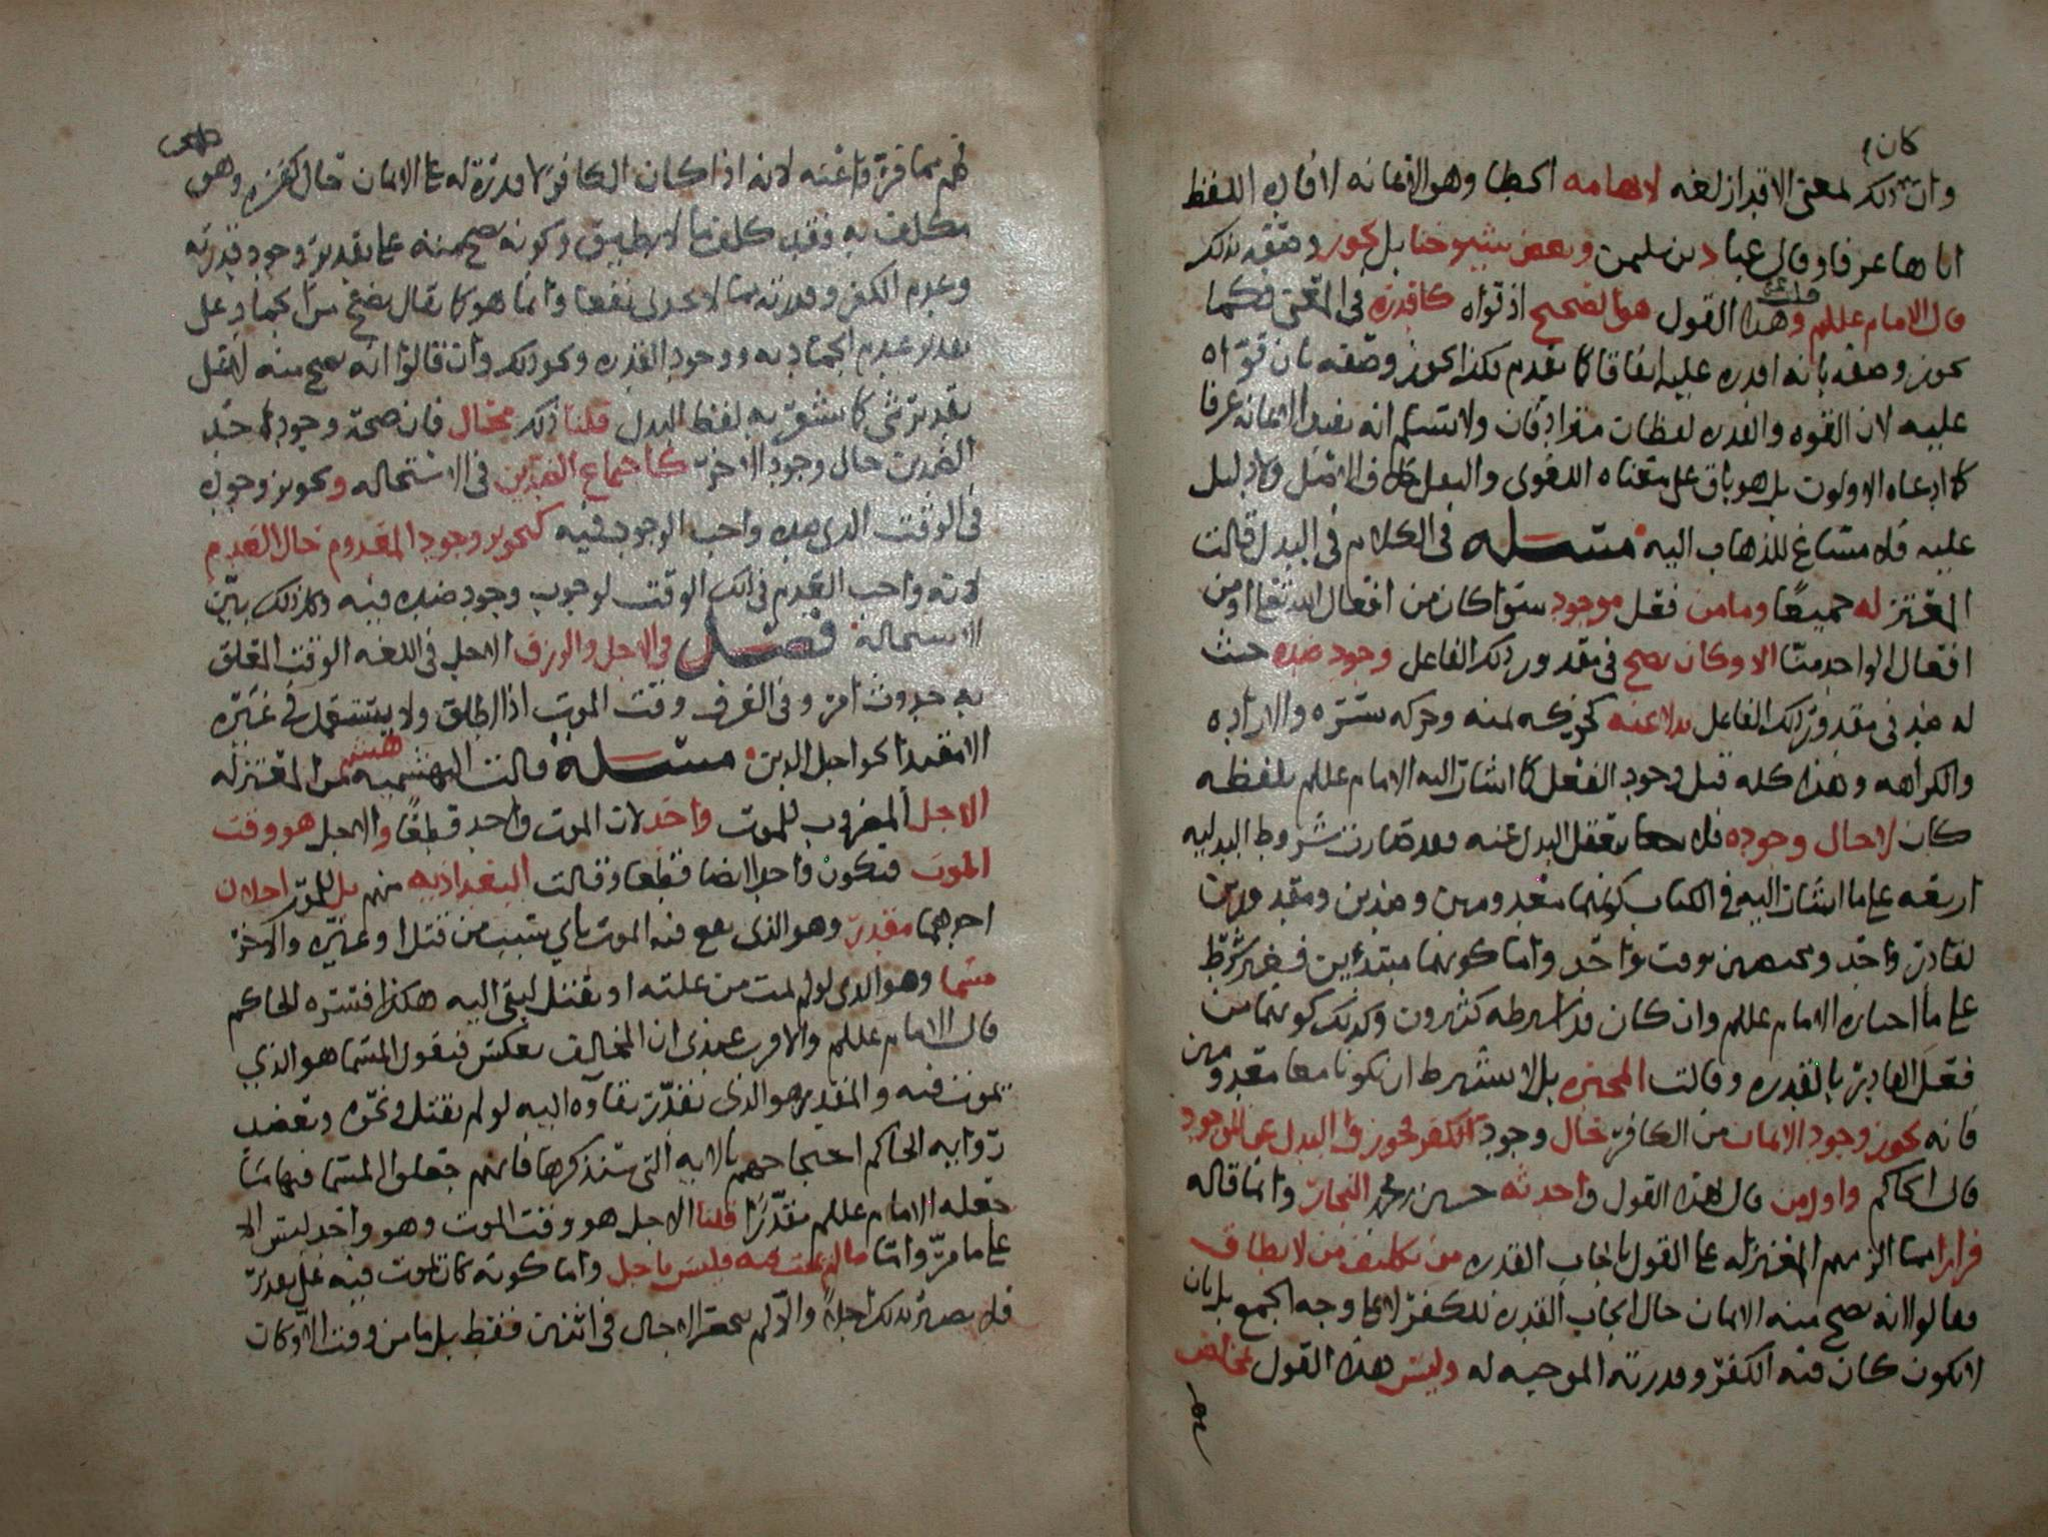 كان
وان ذلك لمعنى الاقدار لغه لايهامه الخطا وهو الاعانه لافاده اللفظ
اياها عرفا وقال عباد بن سليمن وبعض شيوخنا بل يجوز وصفه بذلك
قال الامام عللم وهذا القول هو الصحيح اذ قواه كاقدره في المعنى فكما
يجوز وصفه بانه اقدره عليه اتفاقا كما تقدم فكذا يجوز وصفه بان قواه
عليه لان القوه والقدره لفظان مترادفان ولا نسلم انه يفيد الاعانه عرفا
كما ادعاه الاولون بل هو باق على معناه اللغوي والنقل خلاف الاصل ولا دليل
عليه فلا مساغ للذهاب اليه مسله في الكلام في البدل قالت
المعتزله جميعا وما من فعل موجود سوا كان من افعال الله تعالى او من
افعال الواحد منا الا وكان يصح في مقدور ذلك الفاعل وجود ضده حيث
له ضد في مقدور ذلك الفاعل بدلا عنه كحركه يمنه وحركه يسره والاراده
والكراهه وهذا كله قبل وجود الفعل كما اشار اليه الامام عللم بلفظه
كان لا حال وجوده فلا يعقل البدل عنه فقد صارت شروط البدليه
اربعه على ما اشار اليه في الكتاب كونهما معدومين وضدين ومقدورين
لقادر واحد ومختصين بوقت واحد واما كونهما مبتدئين فغير شرط
على ما اختاره الامام عللم وان كان قد اشرطه كثيرون وكذلك كونهما من
فعل القادر بالقدره وقالت المجبره بل لا يشترط ان يكونا معا معدومين
فانه يجوز وجود الايمان من الكافر حال وجود الكفر يجوز والبدل عن الموجود
قال الحاكم واول من قال هذا القول واحدثه حسين بن محمد النجار وانما قاله
فرارا مما الزمهم المعتزله على القول بايجاب القدره من تكليف من لا يطاق
فقالوا انه يصح منه الايمان حال ايجاب القدره للكفر لا على وجه الجمع بل بان
لا يكون كان فيه الكفر وقدرته الموجبه له وليس هذا القول بمخلص
لهم مما فروا عنه لانه اذا كان الكافر لا قدرة له على الايمان حال كفره وهو
مكلف به فقد كلف ما لا يطيق وكونه يصح منه على تقدير وجود قدرته
وعدم الكفر وقدرته مما لا يجدي نفعا وانما هو كما يقال يصح من الجماد فعل
تقدير عدم الجماديه ووجود القدره ونحو ذلك وان قالوا انه يصح منه لا على
تقدير شي كما يشعر به لفظ البدل قلنا ذلك محال فان صحة وجود احد
الضدين حال وجود الاخر كاجماع الضدين في الاستحاله وتجويز وجوده
في الوقت الذي ضده واجب الوجود فيه كتجويز وجود المعدوم حال العدم
لانه واجب العدم في ذلك الوقت لوجوب وجود ضده فيه وكل ذلك بين
الاستحالة فصل في الاجل والرزق الاجل في اللغه الوقت المعلق
به حدوث امر وفي العرف وقت الموت اذا اطلق ولا يستعمل في غيره
الا مقيدا نحو اجل الدين مسله قالت البهشميه من المعتزله
الاجل المضروب للموت واحد لان الموت واحد قطعا والاجل هو وقت
الموت فيكون واحدا ايضا قطعا وقالت البغداديه منهم بل للموت اجلان
احدهما مقدر وهو الذي يقع فيه الموت باي سبب من قتل او غيره والاخر
مسما وهو الذي لو لم يمت من علته او يقتل لبقي اليه هكذا فسره الحاكم
قال الامام عللم والاقرب عندي ان المخالف يعكس فيقول المسما هو الذي
يموت فيه والمقدر هو الذي يقدر بقاوه اليه لو لم يقتل ونحوه ويعضد
روايه الحاكم احتجاجهم بالايه التي سنذكرها فانهم جعلوا المسما فيها ما
جعله الامام عللم مقدرا قلنا الاجل هو وقت الموت وهو واحد ليس الا
على ما مر واما ما لم يمت فيه فليس باجل واما كونه كان يموت فيه على تقدير
فلا يصير بذلك اجلا والا لم تنحصر الاجال في اثنين فقط بل ما من وقت الا وكان